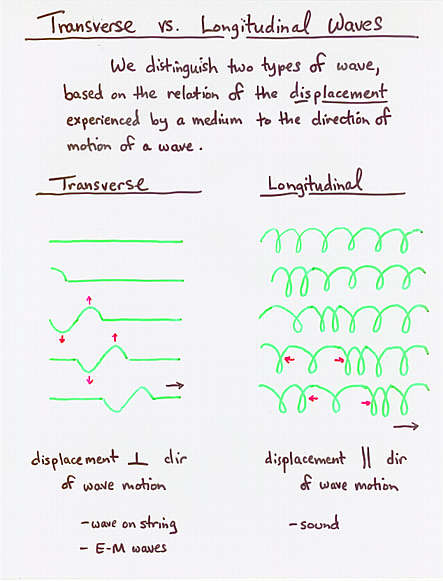 Transverse vs. Longitudinal Waves
We distinguish two types of wave,
based on the relation of the displacement
experienced by a medium to the direction of
motion of a wave.
Transverse
Longitudinal
displacement ⊥ dir
of wave motion
- wave on string
- E-M waves
displacement || dir
of wave motion
- sound